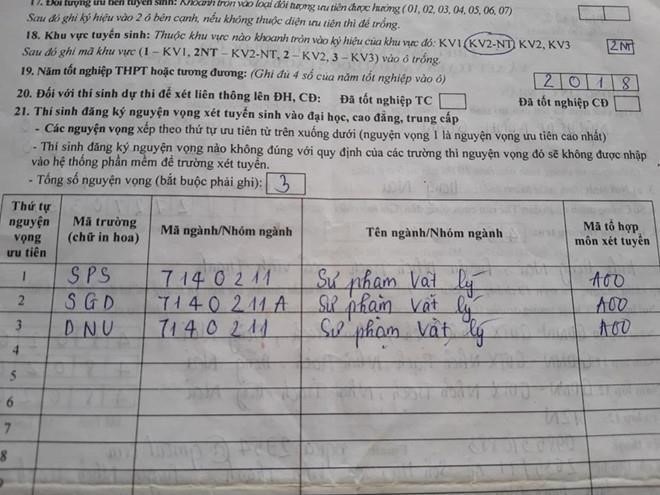 17. Đối tượng ưu tiên tuyển sinh: Khoanh tròn vào loại đối tượng ưu tiên được hưởng (01, 02, 03, 04, 05, 06, 07)
Sau đó ghi ký hiệu vào 2 ô bên cạnh, nếu không thuộc diện ưu tiên thì để trống.
18. Khu vực tuyển sinh: Thuộc khu vực nào khoanh tròn vào ký hiệu của khu vực đó: KV1, KV2-NT, KV2, KV3
Sau đó ghi mã khu vực (1 – KV1, 2NT – KV2-NT, 2 – KV2, 3 – KV3) vào ô trống. 2NT
19. Năm tốt nghiệp THPT hoặc tương đương: (Ghi đủ 4 số của năm tốt nghiệp vào ô) 2 0 1 8
20. Đối với thí sinh dự thi để xét liên thông lên ĐH, CĐ: Đã tốt nghiệp TC Đã tốt nghiệp CĐ
21. Thí sinh đăng ký nguyện vọng xét tuyển sinh vào đại học, cao đẳng, trung cấp
- Các nguyện vọng xếp theo thứ tự ưu tiên từ trên xuống dưới (nguyện vọng 1 là nguyện vọng ưu tiên cao nhất)
- Thí sinh đăng ký nguyện vọng nào không đúng với quy định của các trường thì nguyện vọng đó sẽ không được nhập
vào hệ thống phần mềm để trường xét tuyển.
- Tổng số nguyện vọng (bắt buộc phải ghi): 3
Thứ tự nguyện vọng ưu tiên Mã trường (chữ in hoa) Mã ngành/Nhóm ngành Tên ngành/Nhóm ngành Mã tổ hợp môn xét tuyển
1 SPS 7140211 Sư phạm Vật lý A00
2 SGD 7140211A Sư phạm Vật lý A00
3 DNU 7140211 Sư phạm Vật lý A00
4
5
6
7
8
9